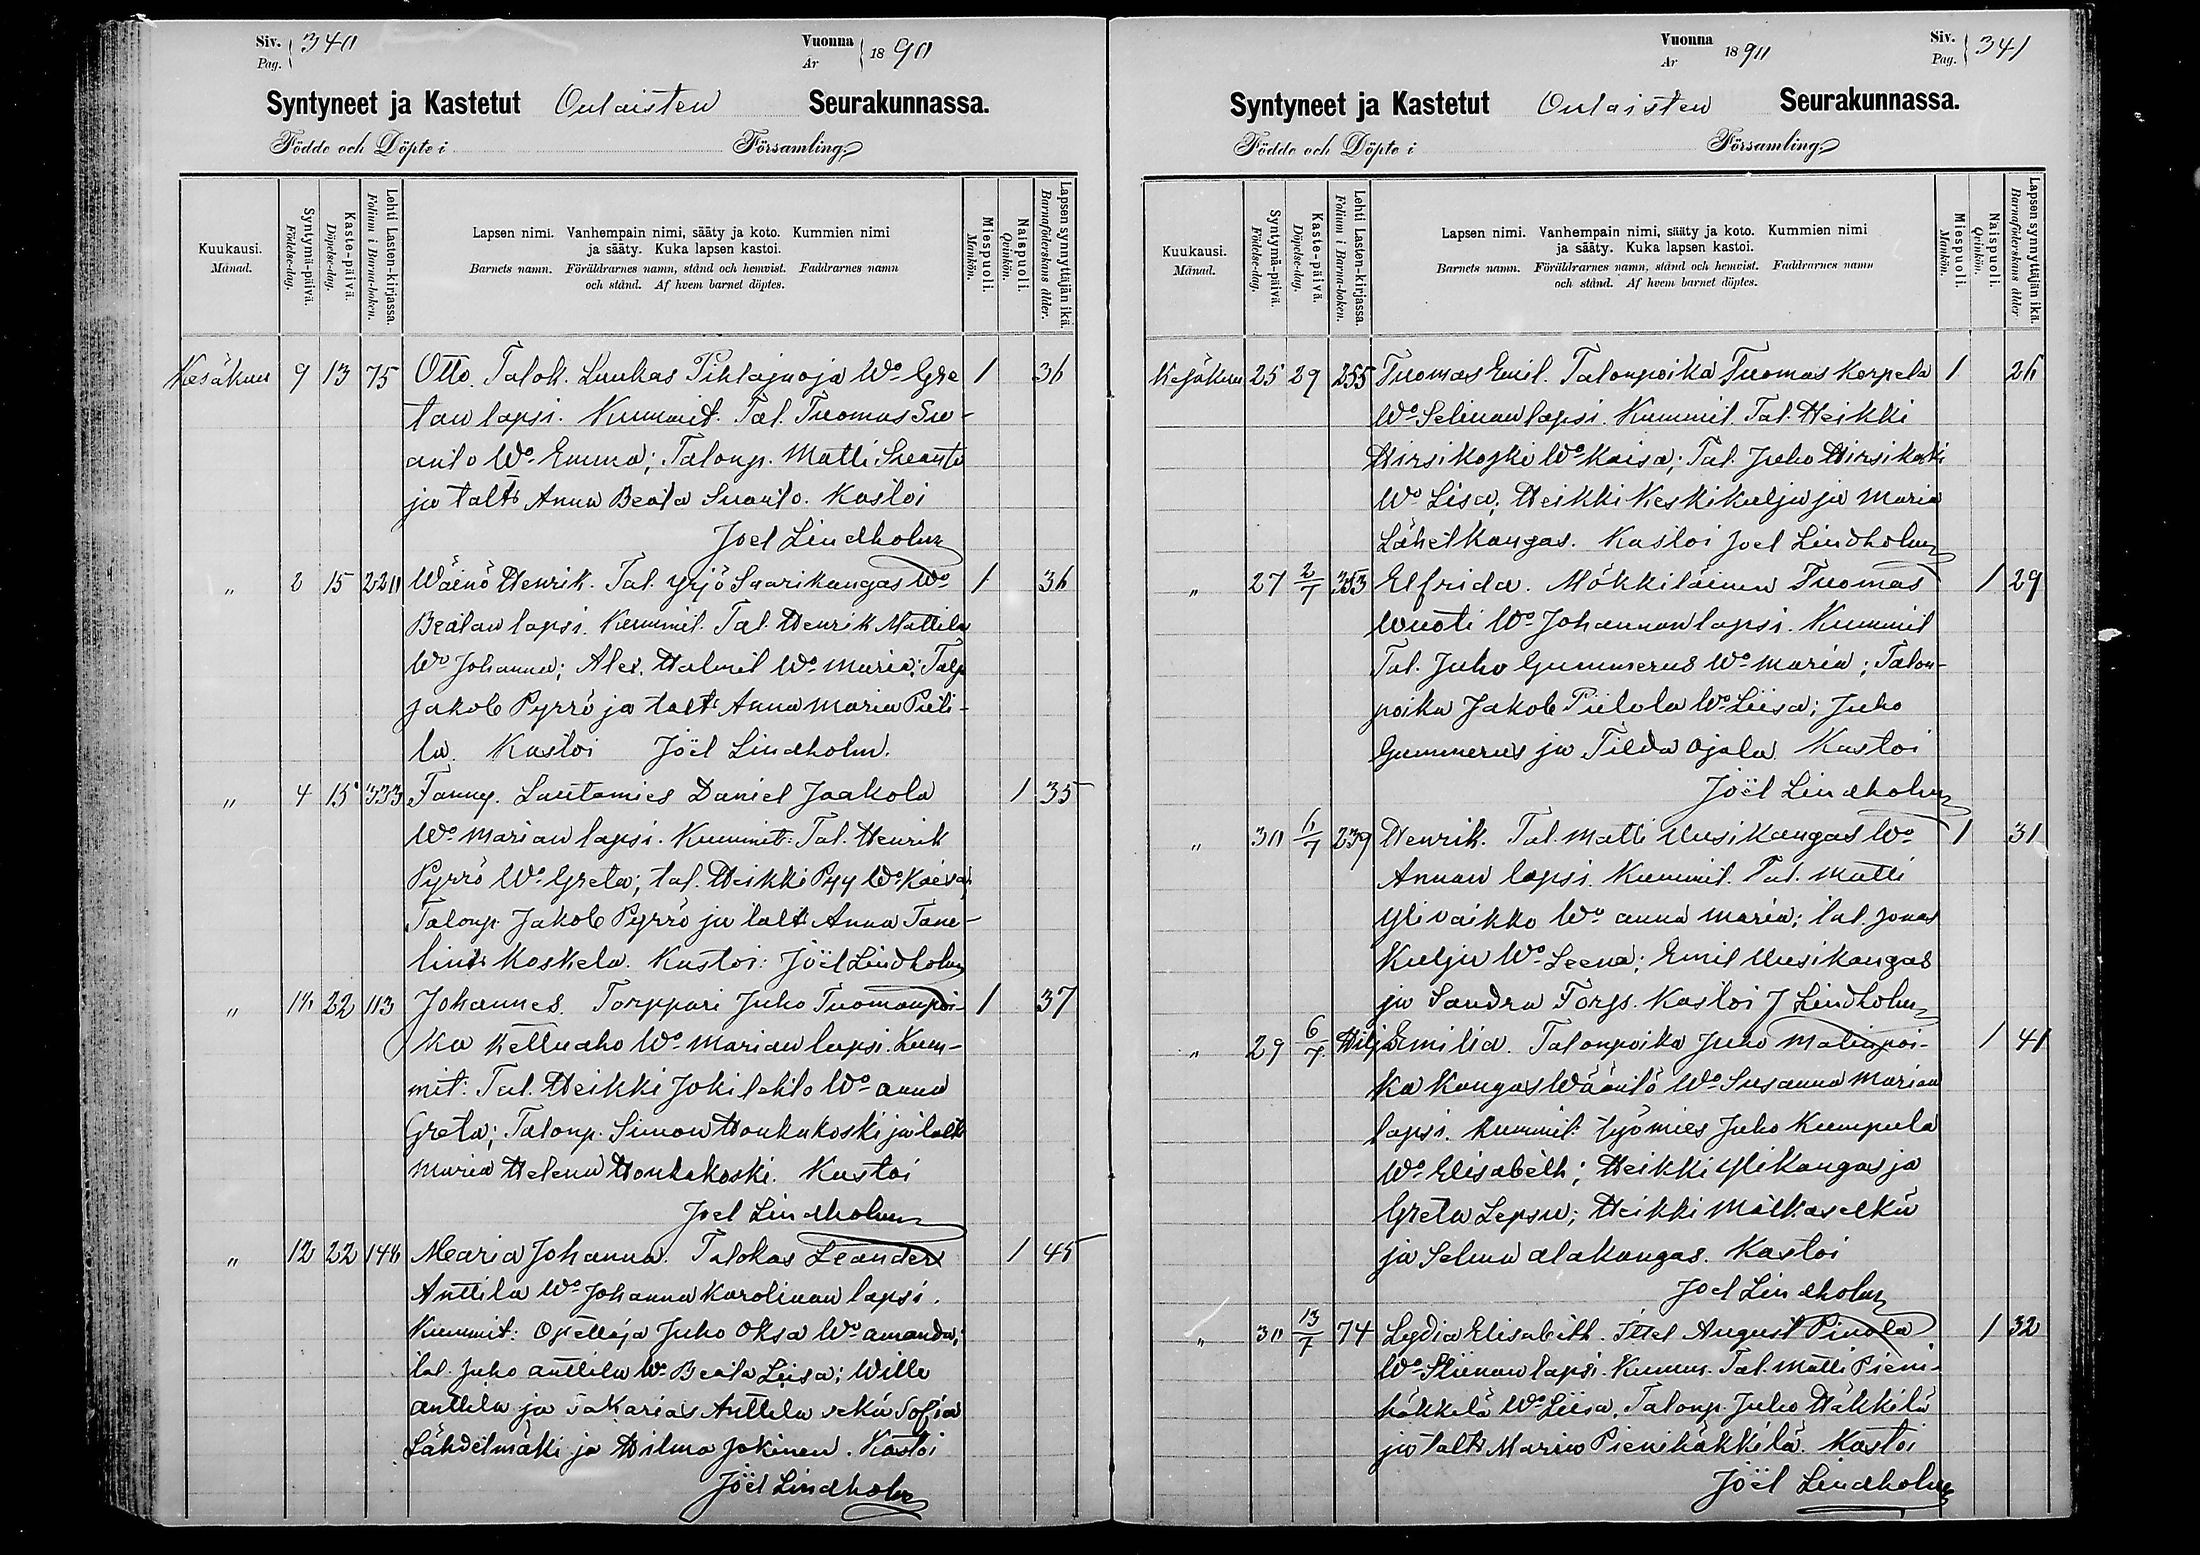 Siv. 340
Pag.
Vuonna 1890
År
Syntyneet ja Kastetut Oulaisten Seurakunnassa.
Födde och Döpte i Församling.
Kuukausi.
Månad.
Syntymä-päivä.
Födelse-dag.
Kaste-päivä.
Döpelse-dag.
Lehti Lasten-kirjassa.
Folium i Barna-boken.
Lapsen nimi. Vanhempain nimi, sääty ja koto. Kummien nimi
ja sääty. Kuka lapsen kastoi.
Barnets namn. Föräldrarnes namn, stånd och hemvist. Faddrarnes namn
och stånd. Af hvem barnet döptes.
Miespuoli.
Mankön.
Naispuoli.
Qvinkön.
Lapsen synnyttäjän ikä.
Barnaföderskans ålder.
Kesäkuu 9 13 75 Otto. Talok. Luukas Pihlajaoja Wo Gre 1 36
tan lapsi. Kummit. Tal. Tuomas Su-
anto Wo Emma; Talonp. Matti Suanto
ja talts Anna Beata Suanto. Kastoi
Joel Lindholm
" 2 15 220 Wäinö Henrik. Tal. Yrjö Saarikangas Wo 1 36
Beatan lapsi. Kummit. Tal. Henrik Mattila
Wo Johanna; Alex. Halmet Wo Maria; Talp
Jakob Pyrrö ja talts Anna Maria Pieti-
la. Kastoi Joël Lindholm.
" 4 15 333 Fanny. Lautamies Daniel Jaakola 1 35
Wo Marian lapsi. Kummit: Tal. Henrik
Pyrrö Wo Greta; tal. Heikki Pyy Wo Kaisa;
Talonp. Jakob Pyrrö ja talts Anna Tane-
lint. Koskela. Kastoi: Joël Lindholm
" 16 22 113 Johannes. Torppari Juho Tuomanpoi- 1 37
ka Kettuaho Wo Marian lapsi. Kum-
mit: Tal. Heikki Jokilehto Wo Anna
Greta; Talonp. Simon Honkakoski ja talts
Maria Helena Honkakoski. Kastoi
Joel Lindholm
" 12 22 146 Maria Johanna. Talokas Leander 1 45
Anttila Wo Johanna Karolinan lapsi.
Kummit: Opettaja Juho Oksa Wo Amanda;
tal. Juho Anttila Wo Beata Liisa; Wille
Anttila ja Sakarias Anttila sekä Sofia
Lähdetmäki ja Hilma Jokinen. Kastoi
Joël Lindholm
Vuonna 1890
År
Siv. 341
Pag.
Syntyneet ja Kastetut Oulaisten Seurakunnassa.
Födde och Döpte i Församling.
Kuukausi.
Månad.
Syntymä-päivä.
Födelse-dag.
Kaste-päivä.
Döpelse-dag.
Lehti Lasten-kirjassa.
Folium i Barna-boken.
Lapsen nimi. Vanhempain nimi, sääty ja koto. Kummien nimi
ja sääty. Kuka lapsen kastoi.
Barnets namn. Föräldrarnes namn, stånd och hemvist. Faddrarnes namn
och stånd. Af hvem barnet döptes.
Miespuoli.
Mankön.
Naispuoli.
Qvinkön.
Lapsen synnyttäjän ikä.
Barnaföderskans ålder
Kesäkuu 25 29 255 Tuomas Emil. Talonpoika Tuomas Korpela 1 26
Wo Selinan lapsi. Kummit. Tal. Heikki
Hirsikoski Wo Kaisa; Tal. Juho Hirsikoski
Wo Lisa; Heikki Keskikulju ja Maria
Lähetkangas. Kastoi Joel Lindholm
" 27 2/7 353 Elfrida. Mökkiläinen Tuomas 1 29
Wuoti Wo Johannan lapsi. Kummit
Tal. Juho Gummerus Wo Maria; Talon-
poika Jakob Piilola Wo Liisa; Juho
Gummerus ja Tilda Ojala. Kastoi
Joël Lindholm
" 30 6/7 239 Henrik. Tal. Matti Uusikangas Wo 1 31
Annan lapsi. Kummit. Tal. Matti
Ylivaikko Wo Anna Maria; tal. Jonas
Kulju Wo Leena; Emil Uusikangas
ja Sandra Torps. Kastoi J Lindholm
" 29 6/7 Hilja Emilia. Talonpoika Juho Matinpoi- 1 41
ka Kangas Wääntö Wo Susanna Marian
lapsi. Kummit: työmies Juho Kumpula
Wo Elisabeth; Heikki Ylikangas ja
Greta Lepsu; Heikki Mätkäselkä
ja Selma Alakangas. Kastoi
Joel Lindholm
" 30 13/7 74 Lydia Elisabeth. Ittel August Pinola 1 32
Wo Stiinan lapsi. Kumm. Tal. Matti Pieni-
häkkilä Wo Liisa, Talonp. Juho Häkkilä
ja talts Maria Pienihäkkilä. Kastoi
Joël Lindholm